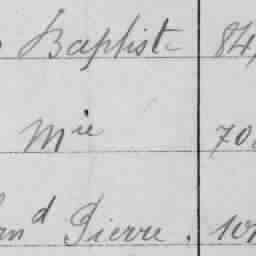 Baptiste 84
Mie 70
nd Pierre. 10